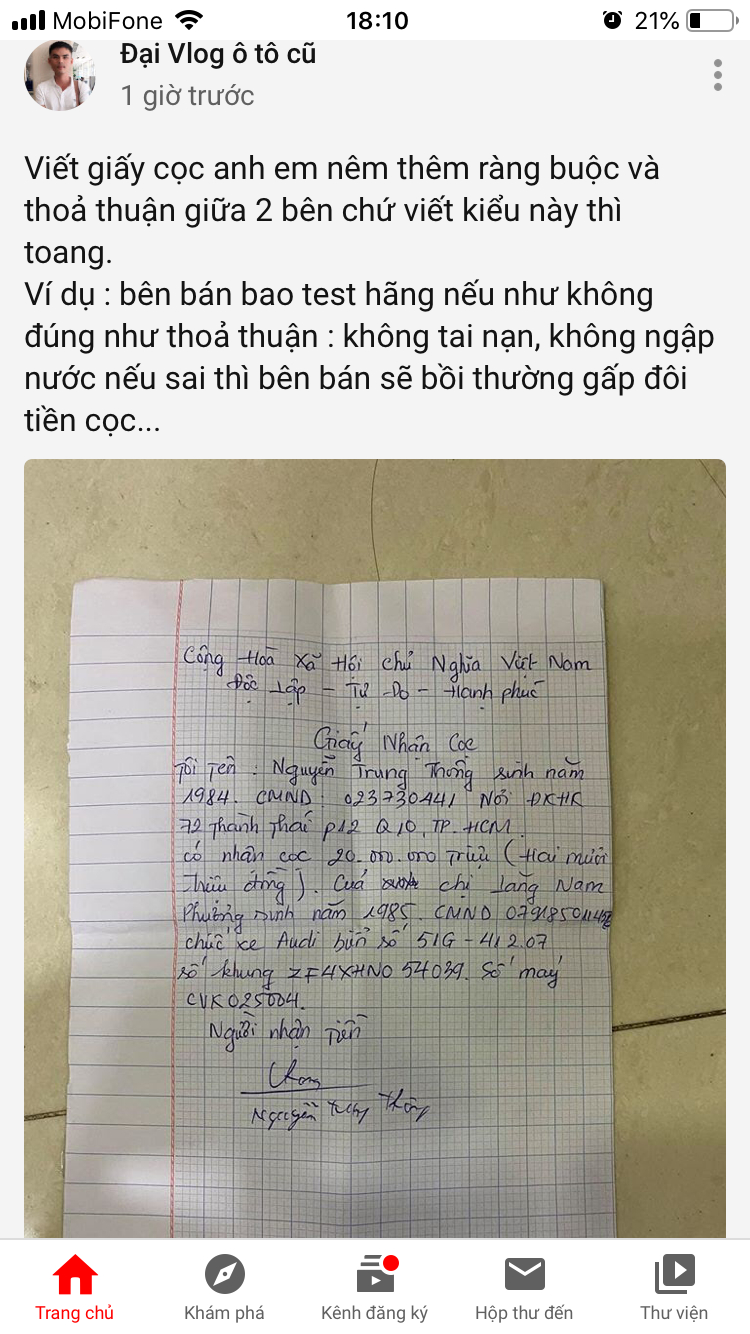 MobiFone
18:10
21%
Đại Vlog ô tô cũ
1 giờ trước
Viết giấy cọc anh em nêm thêm ràng buộc và
thoả thuận giữa 2 bên chứ viết kiểu này thì
toang.
Ví dụ : bên bán bao test hãng nếu như không
đúng như thoả thuận : không tai nạn, không ngập
nước nếu sai thì bên bán sẽ bồi thường gấp đôi
tiền cọc...
Cộng Hoà Xã Hội chủ Nghĩa Việt Nam
Độc Lập - Tự Do - Hạnh phúc
Giấy Nhận Cọc
Tôi Tên : Nguyễn Trung Thông sinh năm
1984. CMND : 023730441 Nơi ĐKHK
72 Thành Thái P12 Q10, TP. HCM.
có nhận cọc 20.000.000 Triệu (Hai mươi
Triệu đồng). Của chị Lang Nam
Phương sinh năm 1985. CMND
chiếc xe Audi biển số 51G - 412.07
số khung ZF4XHN054039. Số máy
CVK025004.
Người nhận Tiền
Nguyễn Trung Thông
Trang chủ
Khám phá
Kênh đăng ký
Hộp thư đến
Thư viện